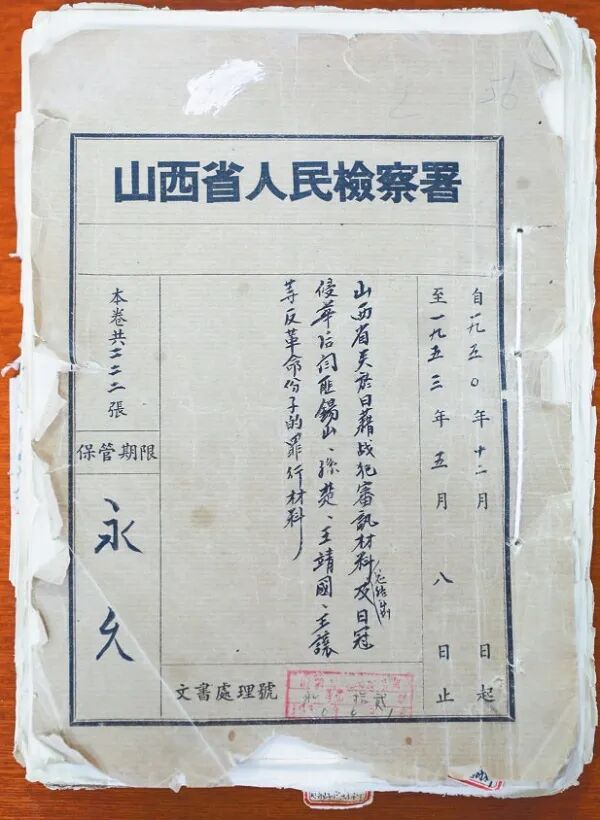 山西省人民檢察署
自一九五〇年十二月 日起
至一九五三年五月 八 日止
山西省关於日藉战犯審訊材料及日冠
总结制
侵華后闫匪錫山、孫楚、王靖國、王讓
等反革命份子的罪行材料
本卷共二二二張
保管期限
永久
文書處理號
貳
56